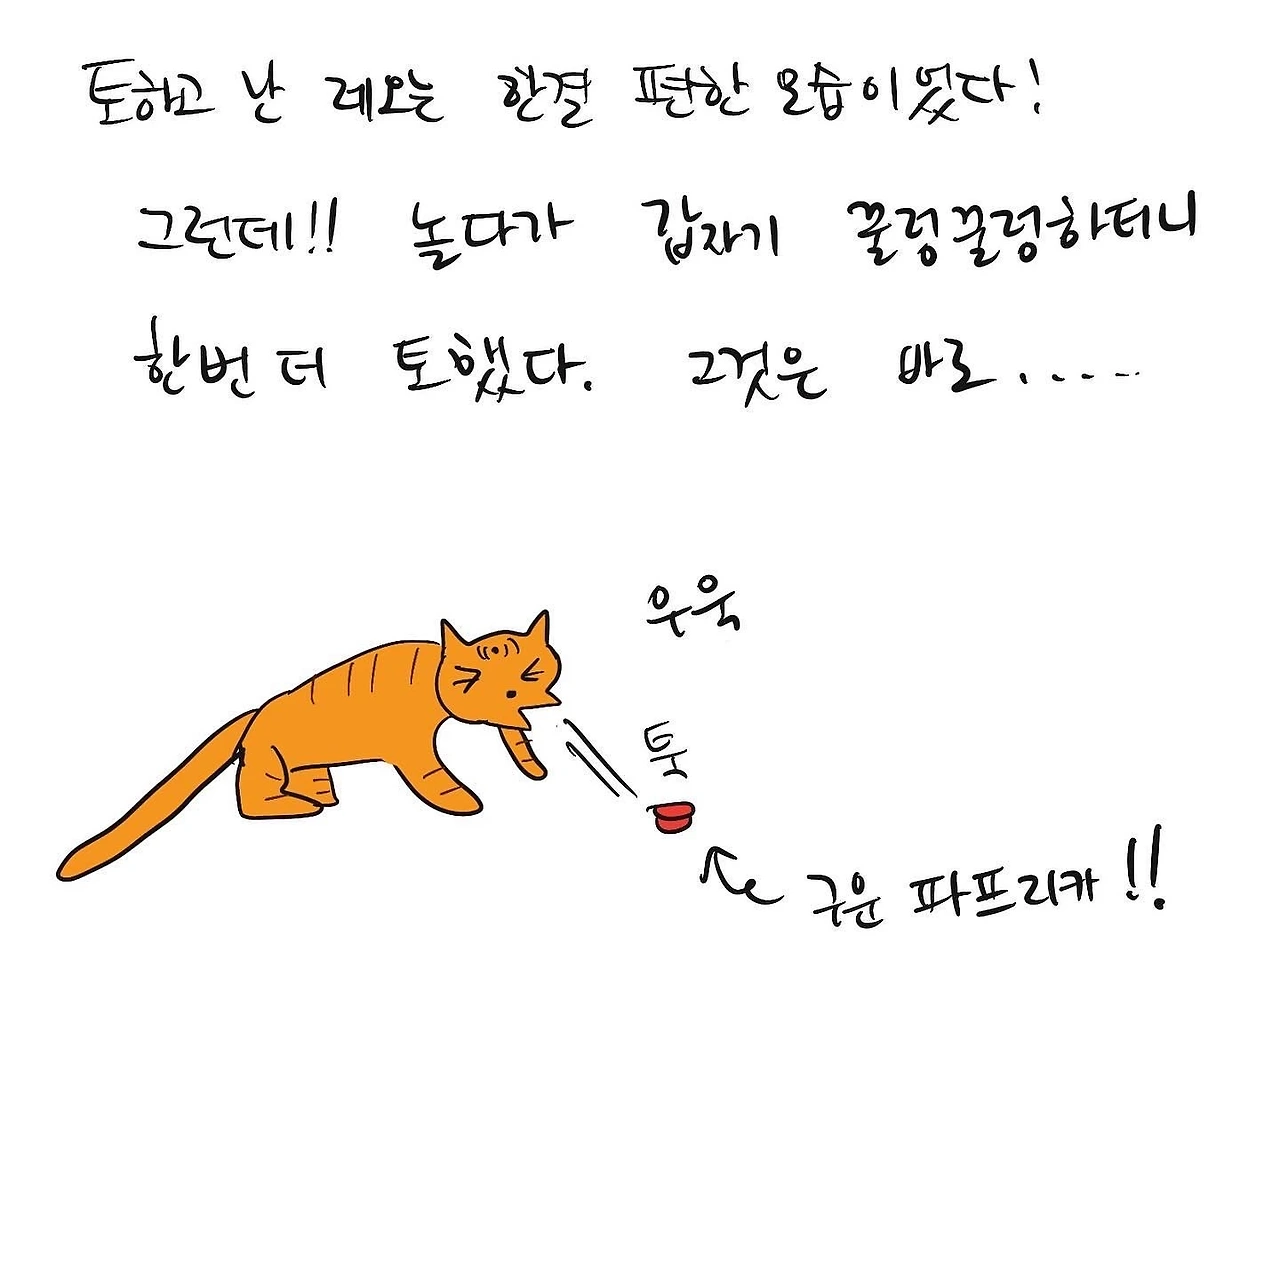 토하고 난 레오는 한결 편한 모습이었다!
그런데!! 놀다가 갑자기 꿀렁꿀렁하더니
한번 더 토했다. 그것은 바로.....
우욱
툭
구운 파프리카!!